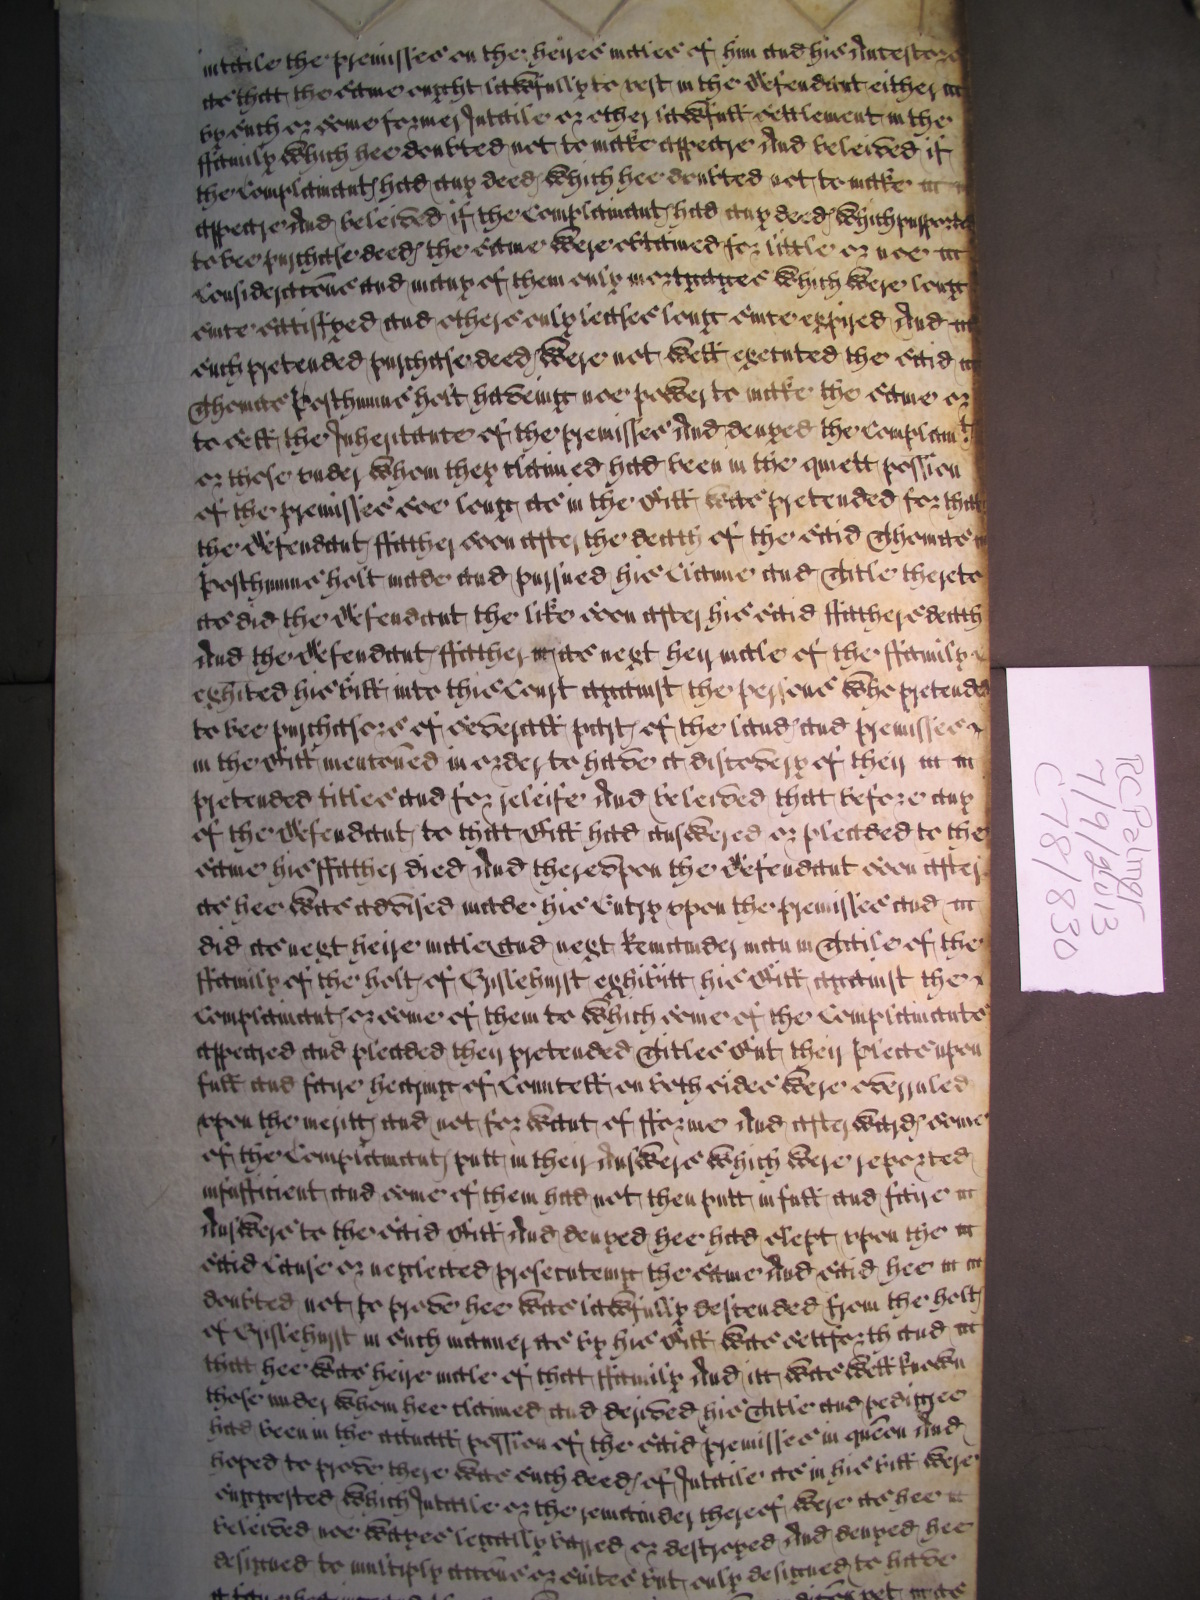 intaile the premisses on the heires males of him and his Ancestors
as that the same ought lawfully to rest in the Defendant either
by such or some former Intaile or other lawfull settlement in the
ffamily which hee doubted not to make appeare And beleived if
the Complainants had any deeds which hee doubted not to make
appeare And beleived if the Complainants had any deeds which purported
to bee purchase deeds the same were obtained for little or noe
Consideracons and many of them only mortgages which were long
since satisfyed and others only leases long since expired And
such pretended purchase deeds were not well executed the said
Thomas Posthumus holt haveing noe power to make the same or
to sell the Inheritance of the premisses And denyed the Complaints
or those under whom they claimed had been in the quiett possion
of the premisses soe long as in the Bill was pretended for that
the Defendants ffather soon after the death of the said Thomas
Posthumus holt made and pursued his Claime and Title thereto
as did the Defendant the like soon after his said ffathers death
And the Defendants ffather as next heir male of the ffamily
exhited his bill into this Court against the persons who pretended
to bee purchasors of severall parts of the lands and premisses
in the Bill mentoned in order to have a discovery of their
pretended titles and for releife And beleived that before any
of the Defendants to that Bill had answered or pleaded to the
same his ffather died And thereupon the Defendant soon after
as hee was advised made his Entry upon the premisses and
did as next heire male and next Remainder man in Taile of the
ffamily of the holts of Grislehurst exhibitt his Bill against the
Complainants or some of them to which some of the Complainants
appeared and pleaded their pretended Titles But their Pleas upon
full and faire hearing of Councell on both sides were overruled
upon the meritts and not for want of fforme And afterwards some
of the Complainants putt in their Answers which were reported
insufficient and some of them had not then putt in full and faire
Answers to the said Bill And denyed hee had slept upon the
said Cause or neglected prosecuteing the same And said hee
doubted not to prove hee was lawfully descended from the holts
of Grislehurst in such manner as by his Bill was settforth and
that hee was heire male of that ffamily And itt was well known
those under whom hee claimed and derived his Title and pedigree
had been in the actuall possion of the said premisses in queon And
hoped to prove there was such deeds of Intaile as in his bill were
suggested which Intaile or the remainder thereof were as hee
beleived noe wayes legally barred or destroyed And denyed hee
designed to multiply accons or suites but only designed to have
RCPalmer
7/9/2013
C78/830